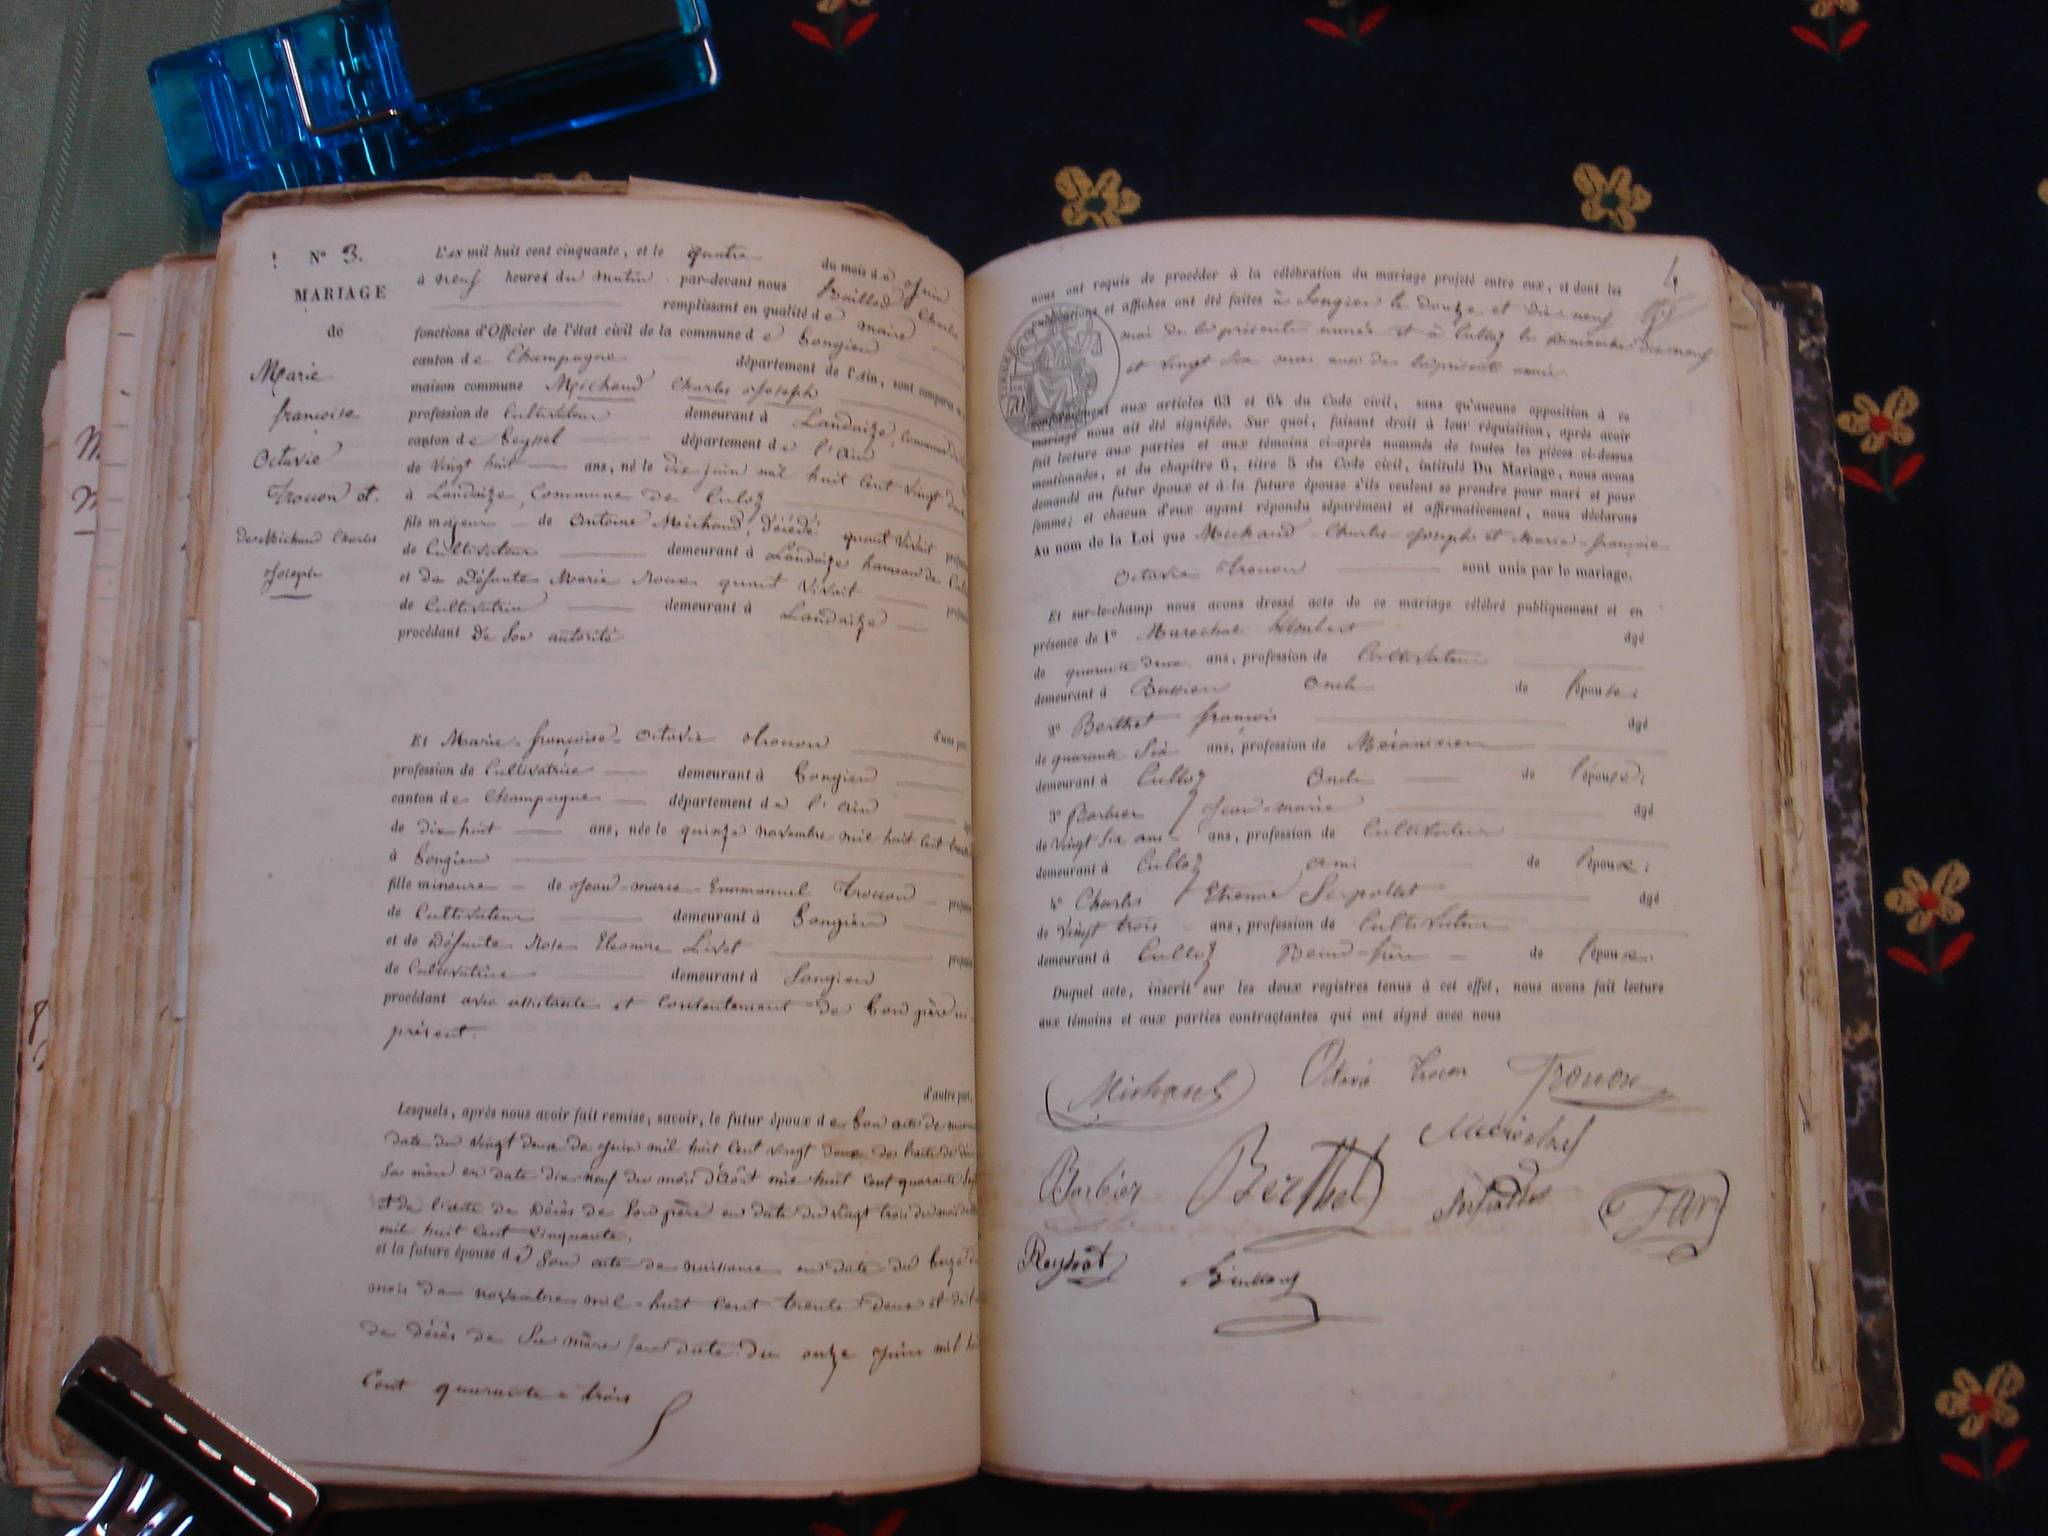 N° 3.
MARIAGE
de
Marie
françoise
Octavie
Trouon et
de Michaud Charles
Joseph
L'an mil huit cent cinquante, et le quatre du mois de Juin
à neuf heures du matin par-devant nous Charles
remplissant en qualité de maire
fonctions d'Officier de l'état civil de la commune de Songieu
canton de Champagne département de l'Ain, sont comparus
maison commune Michaud Charles Joseph
profession de Cultivateur demeurant à Landaize, Commune
canton de Seyssel département de l'Ain
de Vingt huit ans, né le dix juin mil huit Cent Vingt deux
à Landaize, Commune de Culoz
fils majeur de Antoine Michaud, Décédé quant Vivait
de Cultivateur demeurant à Landaize hameau de
et de Défunte Marie quant Vivait
de Cultivatrice demeurant à Landaize
procédant De Son autorité
d'une part,
Et Marie-françoise-Octavie Trouon
profession de Cultivatrice demeurant à Songieu
canton de Champagne département de l'Ain
de dix huit ans, née le quinze novembre mil huit Cent
à Songieu
fille mineure de Jean-marie-Emmanuel Trouon
de Cultivateur demeurant à Songieu
et de Défunte Rose Eleonore Livet
de Cultivatrice demeurant à Songieu
procédant avec assistante et Consentement de Son père
présent.
d'autre part,
Lesquels, après nous avoir fait remise, savoir, le futur époux de Son acte de
date du Vingt deux de Juin mil huit Cent Vingt deux de
Sa mère en date dix-neuf du mois D'août mil huit Cent quarante
et de l'acte de Décès de Son père en date du Vingt trois du mois
mil huit Cent Cinquante.
et la future épouse de Son acte de naissance en date du
mois de novembre mil-huit Cent trente Deux et de
de décès de Sa mère en date du onze Juin mil
Cent quarante-trois
4
nous ont requis de procéder à la célébration du mariage projeté entre eux, et dont les
publications et affiches ont été faites à Songieu le douze et Dix-neuf
mai de la présente année et à Culloz les Dimanches dix neuf
et vingt Six mai aussi de la présente année
conformément aux articles 63 et 64 du Code civil, sans qu'aucune opposition à ce
mariage nous ait été signifiée. Sur quoi, faisant droit à leur réquisition, après avoir
fait lecture aux parties et aux témoins ci-après nommés de toutes les pièces ci-dessus
mentionnées, et du chapitre 6, titre 5 du Code civil, intitulé Du Mariage, nous avons
demandé au futur époux et à la future épouse s'ils veulent se prendre pour mari et pour
femme; et chacun d'eux ayant répondu séparément et affirmativement, nous déclarons
Au nom de la Loi que Michaud-Charles-Joseph et Marie-françoise
Octavie Trouon sont unis par le mariage.
Et sur-le-champ nous avons dressé acte de ce mariage célébré publiquement et en
présence de 1° Marechal Humbert âgé
de quarante deux ans, profession de Cultivateur
demeurant à Bassieu Oncle de l'épouse;
2° Berthet françois âgé
de quarante Six ans, profession de Mécanicien
demeurant à Culloz Oncle de l'épouse;
3° Barbier Jean-marie âgé
de Vingt Six ans ans, profession de Cultivateur
demeurant à Culloz ami de l'époux;
4° Charles Etienne Serpollet âgé
de Vingt trois ans, profession de Cultivateur
demeurant à Culloz Beau-frère de l'époux.
Duquel acte, inscrit sur les deux registres tenus à cet effet, nous avons fait lecture
aux témoins et aux parties contractantes qui ont signé avec nous
Michaud Octavie Trouon Trouon
Maréchal
Barbier Berthet Serpollet